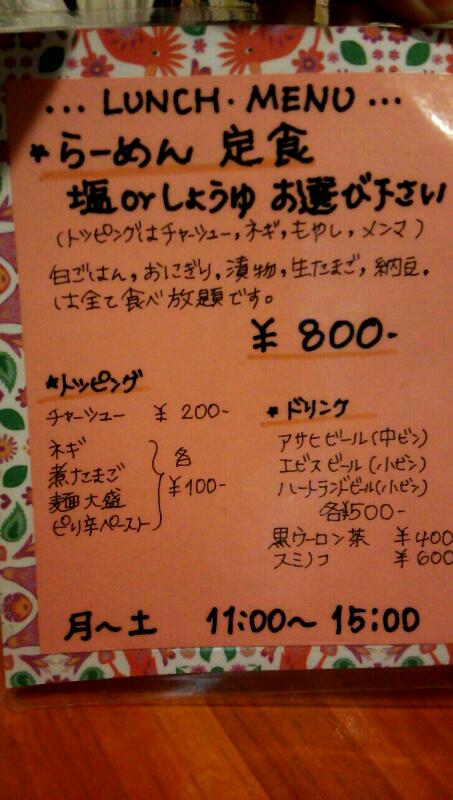 ... LUNCH・MENU ...
*らーめん 定食
塩orしょうゆ お選び下さい
(トッピングはチャーシュー,ネギ,もやし,メンマ)
白ごはん,おにぎり,漬物,生たまご,納豆。
は全て食べ放題です。
¥800-
*トッピング
チャーシュー ¥200-
ネギ
煮たまご
麺大盛
ピリ辛ペースト
各
¥100-
*ドリンク
アサヒビール(中ビン)
エビスビール(小ビン)
ハートランドビール(小ビン)
各¥500-
黒ウーロン茶 ¥400
スミノコ ¥600
月〜土 11:00〜15:00